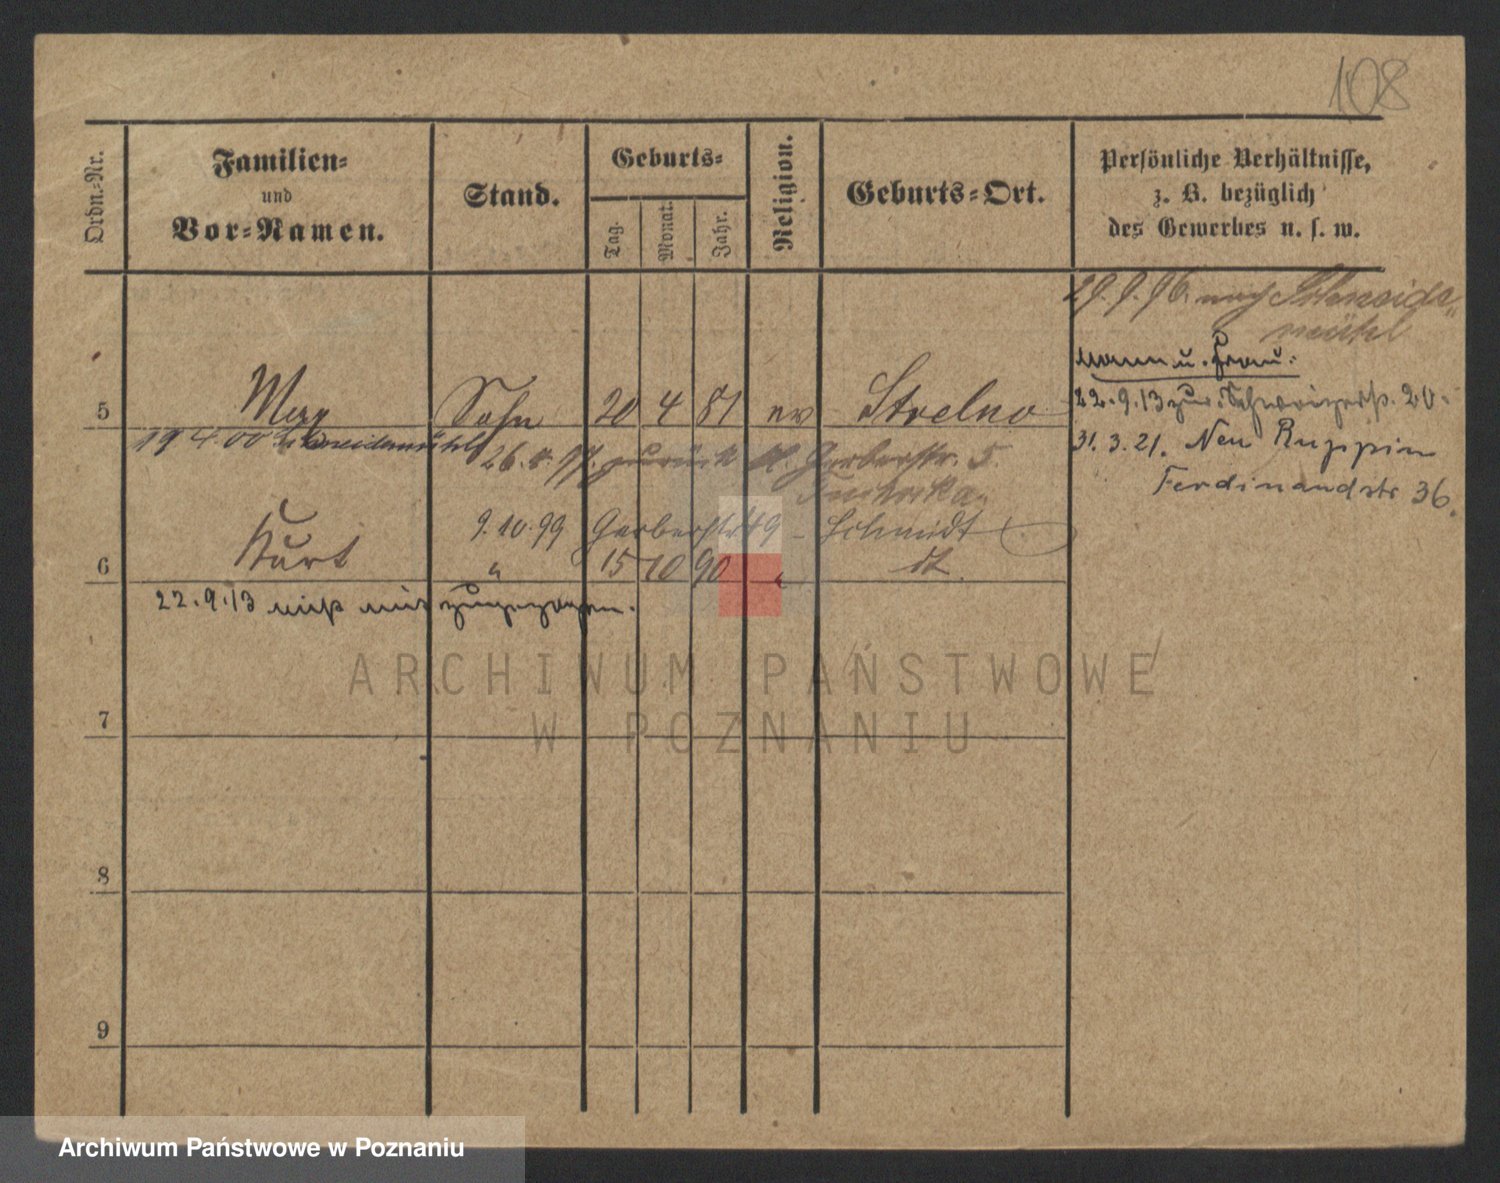 108
Ordn.-Nr.
Familien-
und
Vor-Namen.
Stand.
Geburts-
Tag.
Monat.
Jahr.
Religion.
Geburts-Ort.
Persönliche Verhältnisse,
z. B. bezüglich
des Gewerbes u. s. w.
29. 9. 96. nach Schneide-
mühl
Mann u. Frau.
5 Max Sohn 20 4 81 ev Strelno
22.9.13 zur. 20.
19 4 00 Schneidemühl
26. 97. zurück Gerberstr. 5.
31. 3. 21. Neu Ruppin
Ferdinandstr 36.
9. 10. 99 Gerberstr 49 - Schmidt
6 Kurt " 15 10 90 "
22.9.13 nicht mit zugezogen.
ARCHIWUM PAŃSTWOWE
W POZNANIU
7
8
9
Archiwum Państwowe w Poznaniu